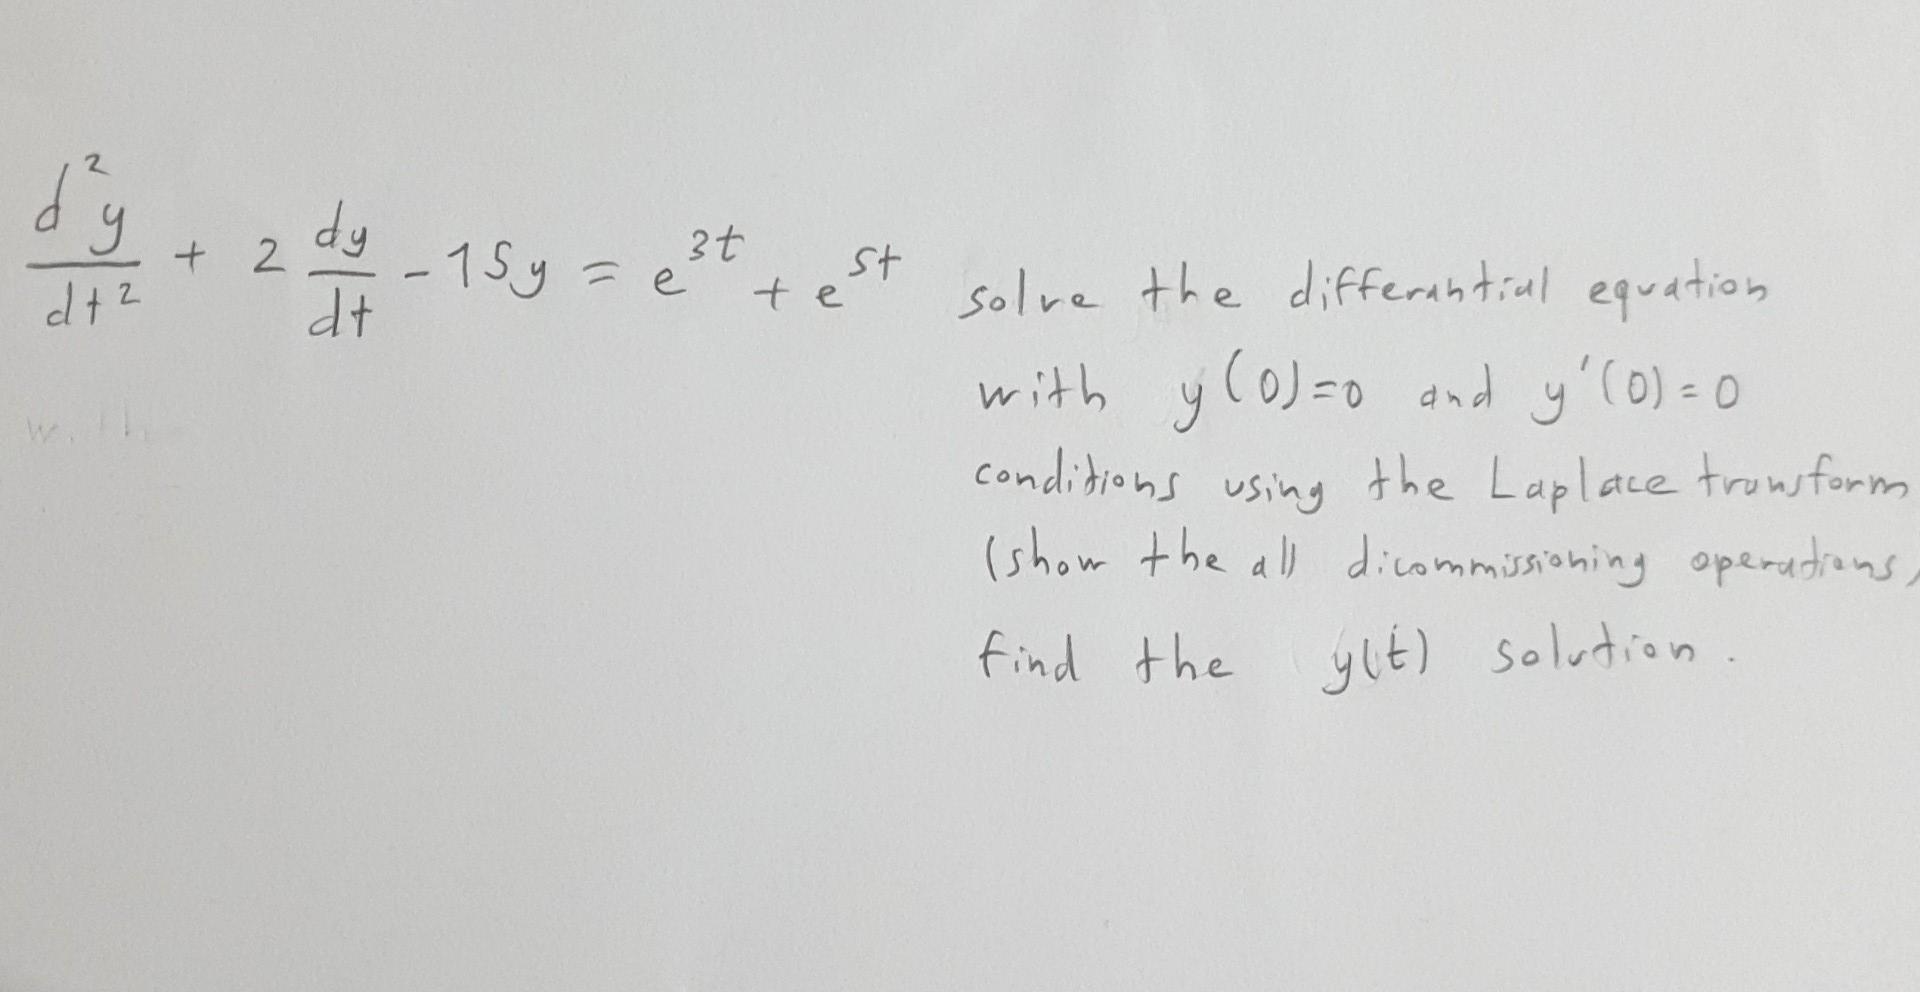 d²y/dt² + 2 dy/dt - 15y = e^3t + e^5t solve the differantial equation
with y(0)=0 and y'(0)=0
with
conditions using the Laplace transform
(show the all dicommissioning operations,
find the y(t) solution.